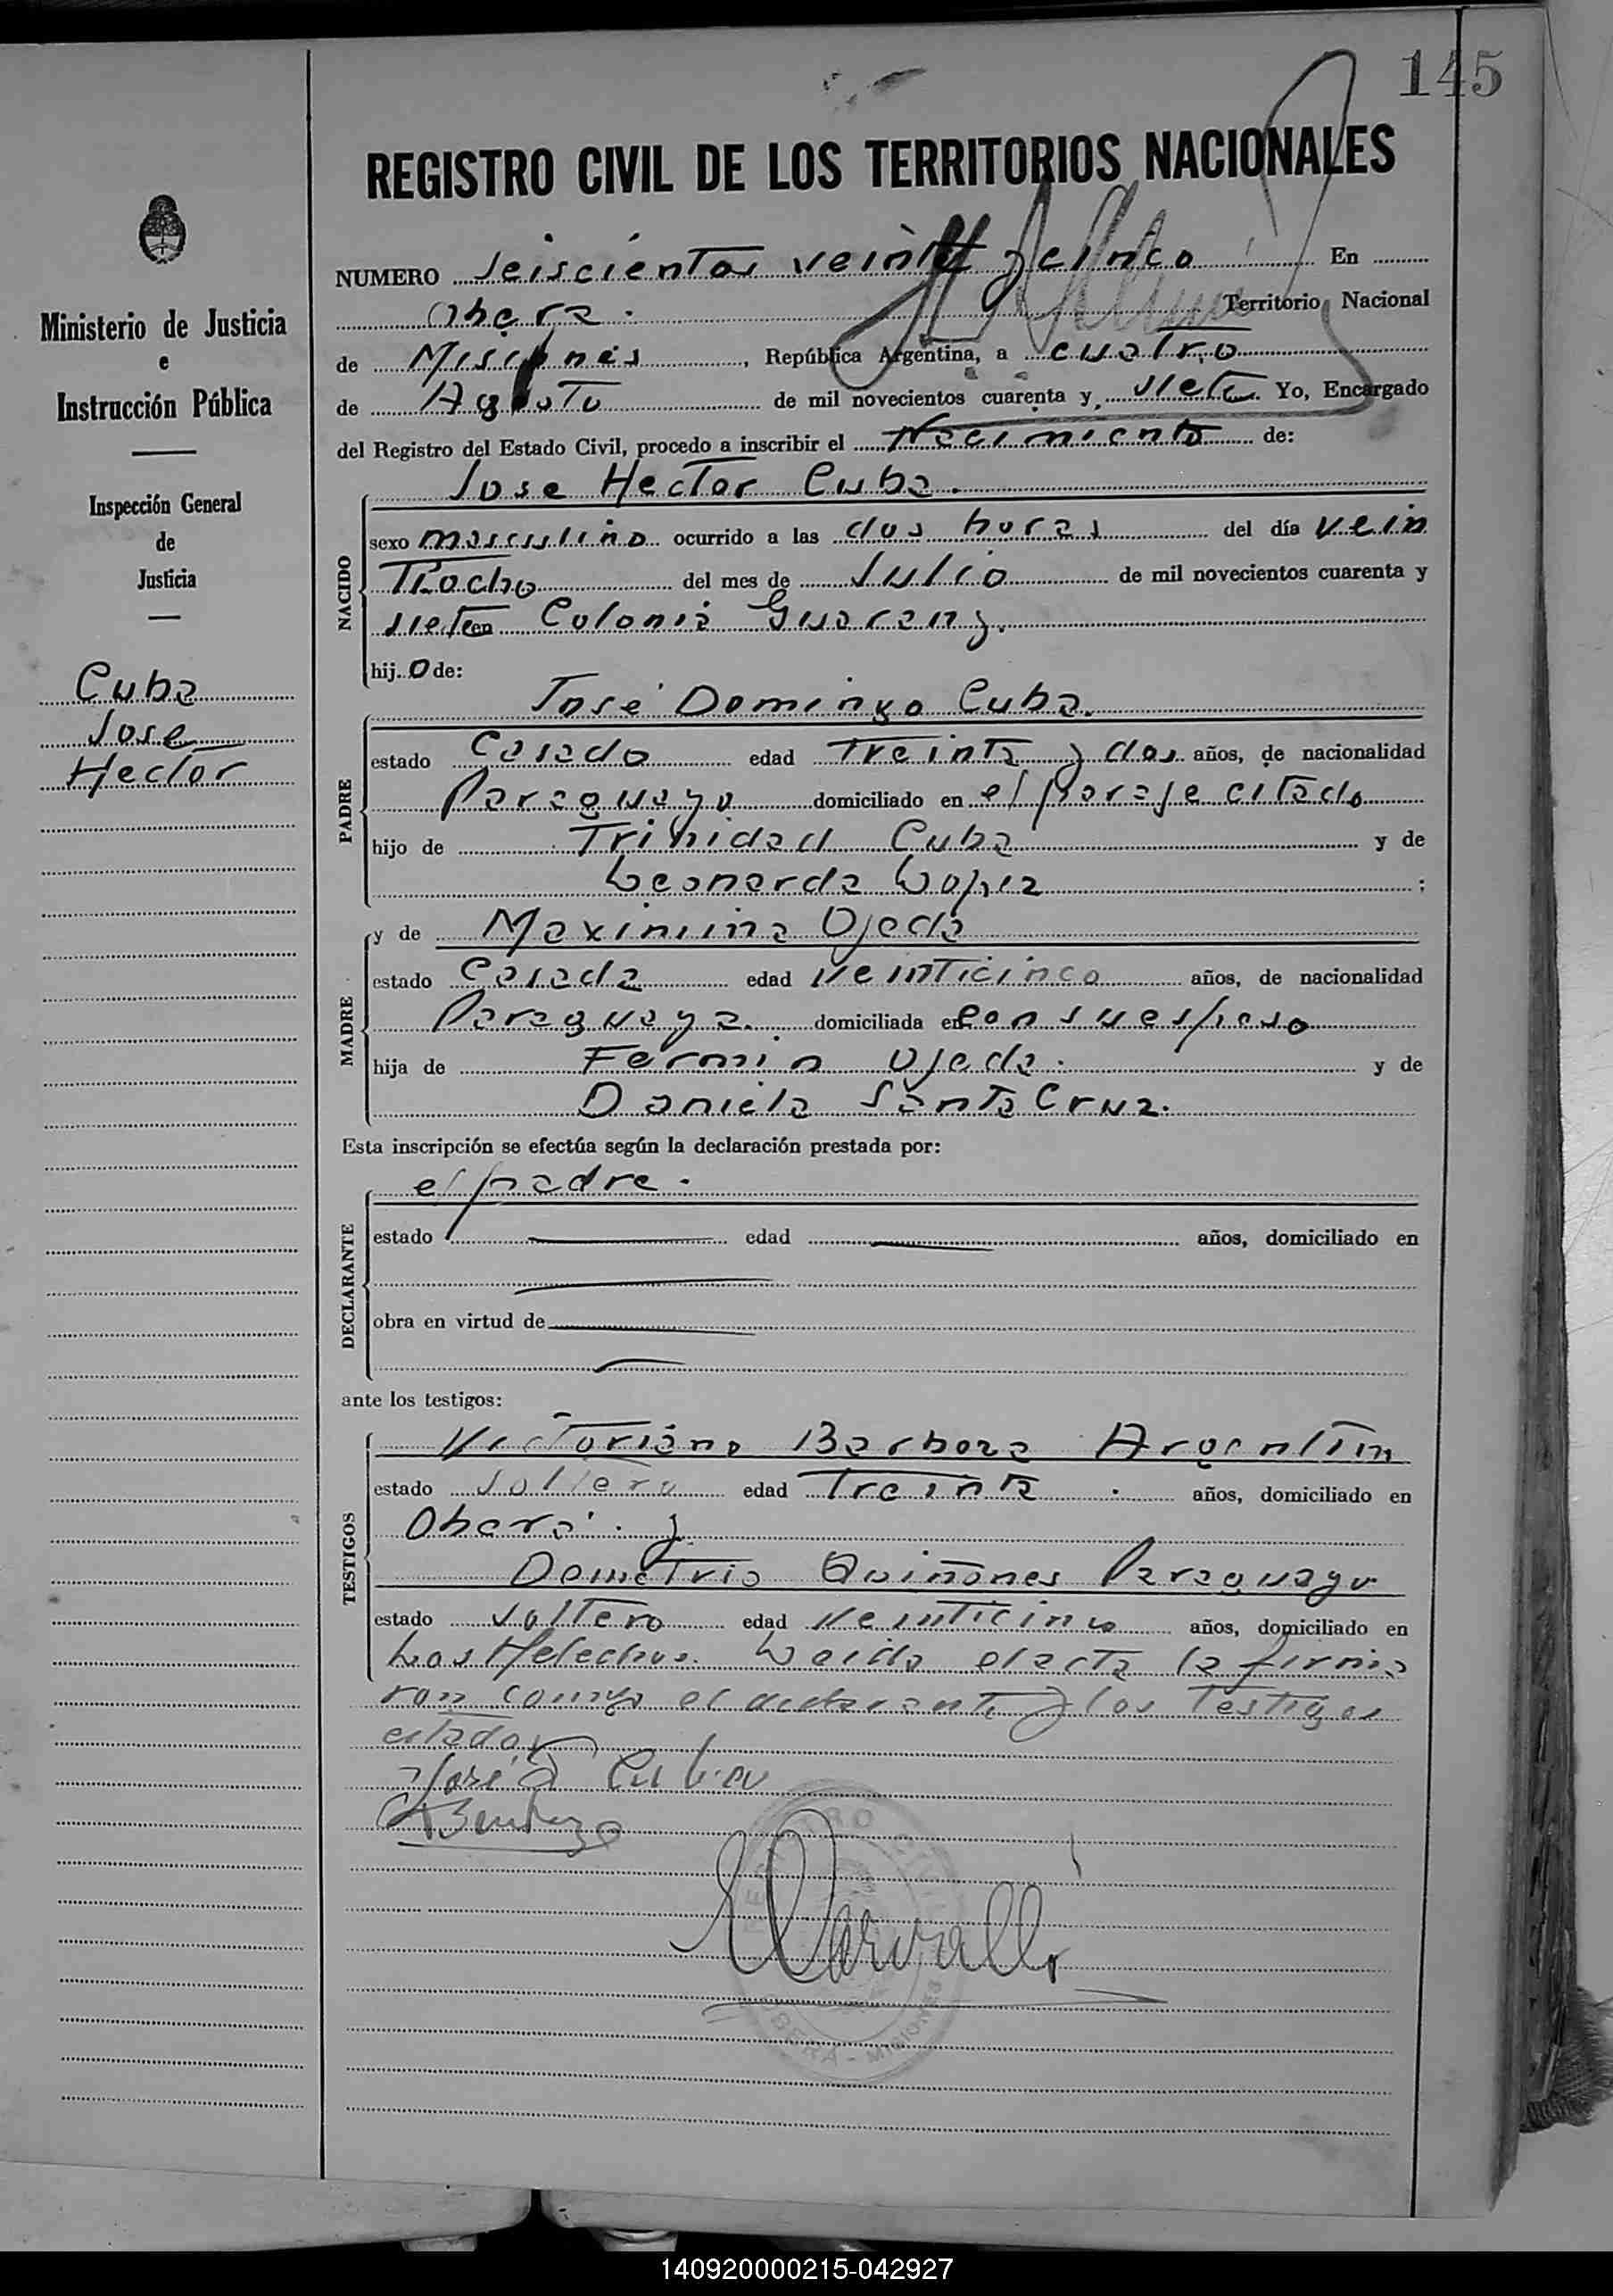 145
REGISTRO CIVIL DE LOS TERRITORIOS NACIONALES
NUMERO seiscientos veinte y cinco En
Obera. Territorio Nacional
de Misiones, República Argentina, a cuatro
de Agosto de mil novecientos cuarenta y siete Yo, Encargado
del Registro del Estado Civil, procedo a inscribir el Nacimiento de:
Ministerio de Justicia
e
Instrucción Pública
Inspección General
de
Justicia
Cuba
Jose
Hector
NACIDO
Jose Hector Cuba.
sexo masculino ocurrido a las dos horas del día vein
tiocho del mes de Julio de mil novecientos cuarenta y
siete en Colonia Guarany.
hij o de:
PADRE
José Domingo Cuba.
estado Casado edad treinta y dos años, de nacionalidad
Paraguayo domiciliado en el paraje citado
hijo de Trinidad Cuba y de
Leonarda Lopez ;
MADRE
y de Maximina Ojeda
estado Casada edad veinticinco años, de nacionalidad
Paraguaya. domiciliada en con su esposo
hija de Fermin Ojeda. y de
Daniela Santa Cruz.
Esta inscripción se efectúa según la declaración prestada por:
DECLARANTE
el padre.
estado edad años, domiciliado en
obra en virtud de
ante los testigos:
TESTIGOS
Victoriano Barboza Argentin
estado soltero edad treinta años, domiciliado en
Oberá. y
Demetrio Quiñones Paraguayo
estado soltero edad veinticinco años, domiciliado en
Los Helechos. Leida el acta la firma
ron conmigo el declarante y los testigos
citados
José D Cuba
REGISTRO CIVIL
OBERA - MISIONES
140920000215-042927